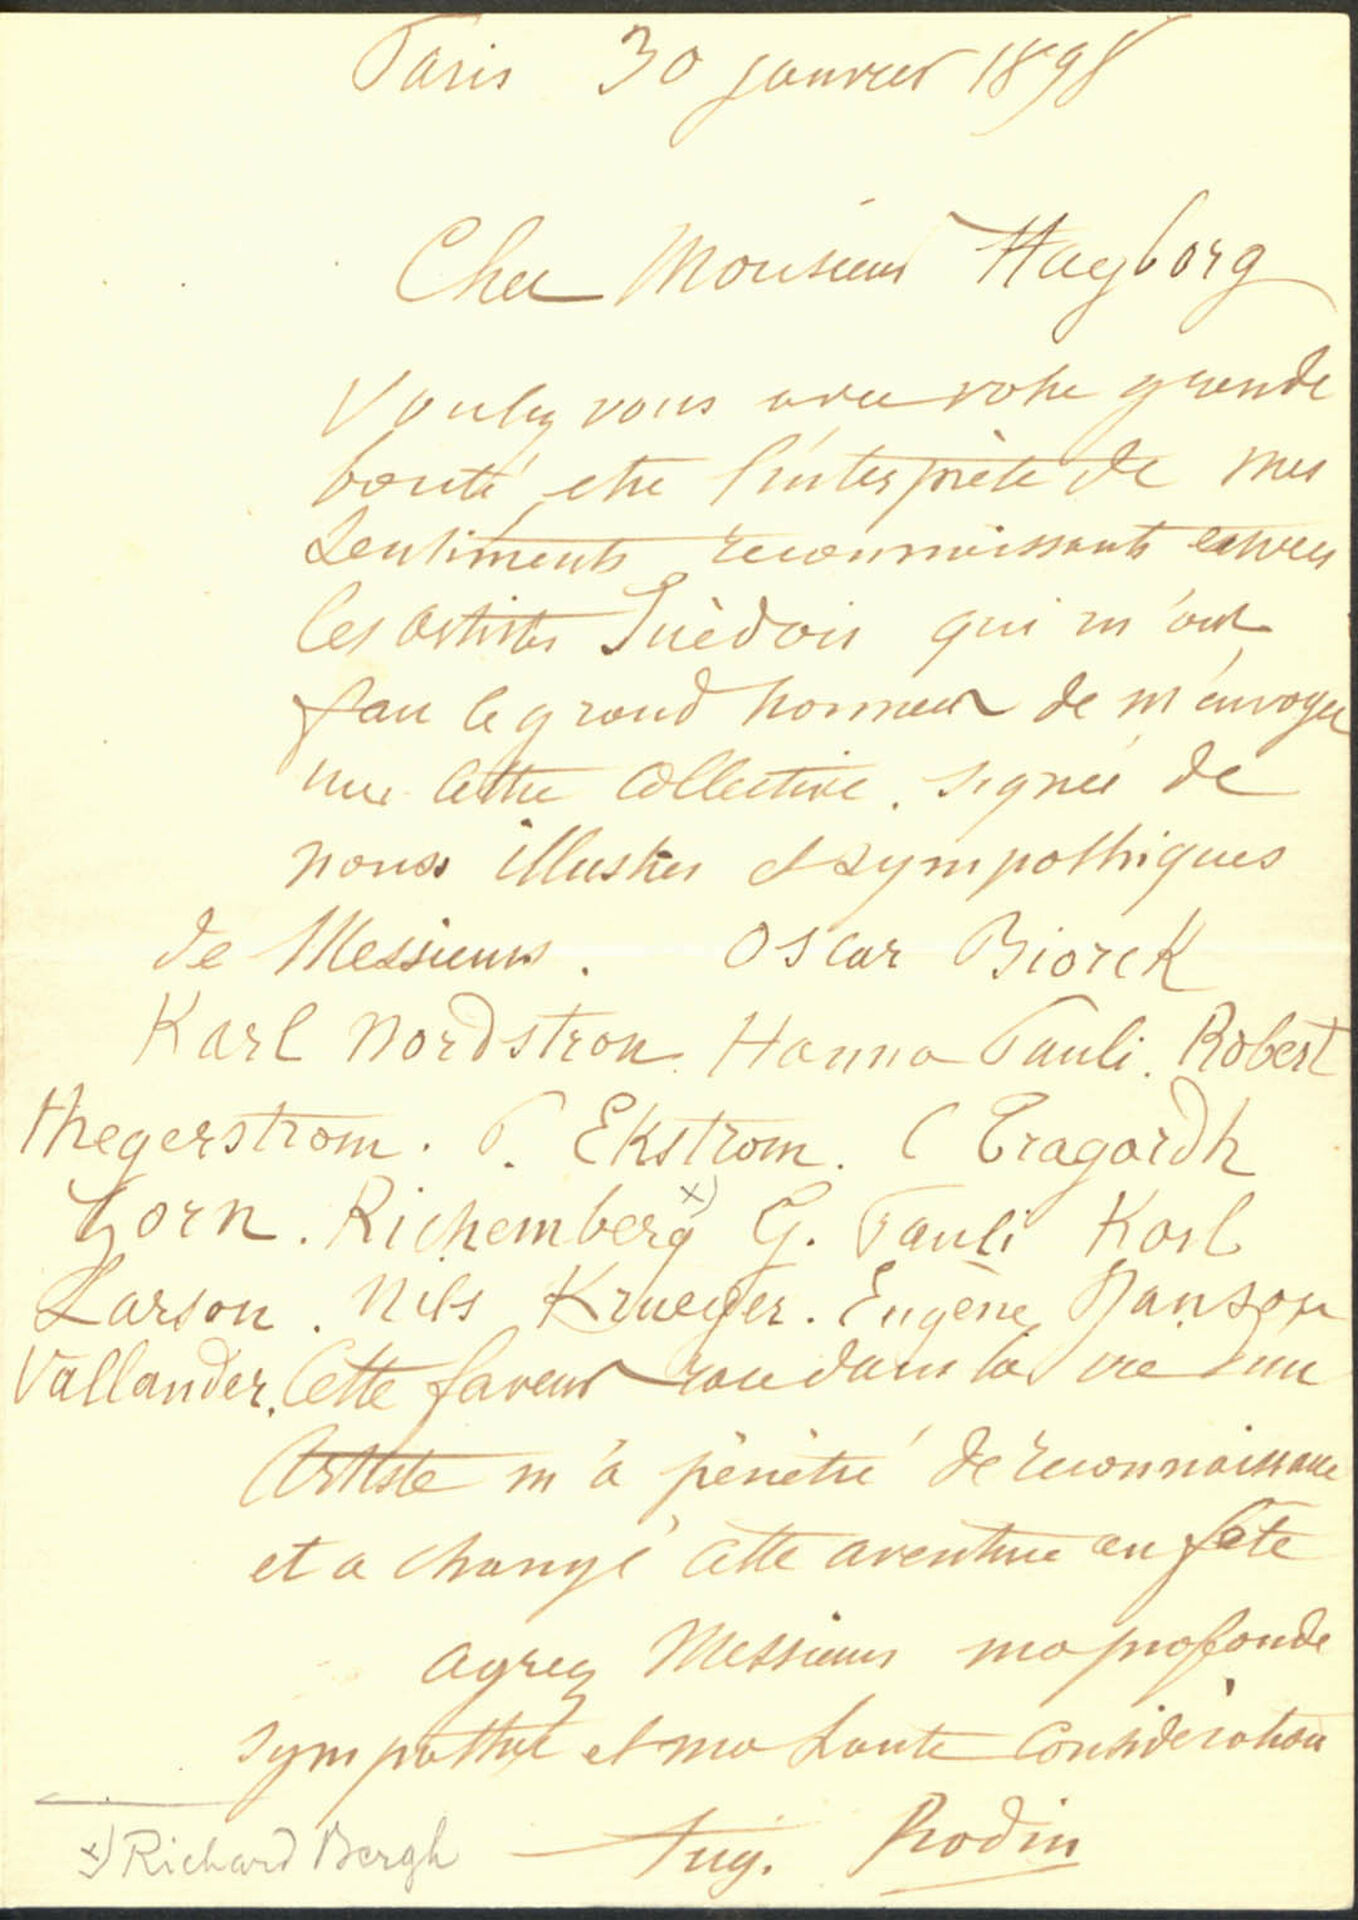 Paris 30 janvier 1898
Cher Monsieur Hagborg
Voulez vous avec votre grande
bonté etre l'interprète de mes
sentiments reconnaissants envers
les artistes Suèdois qui m'ont
fait le grand honneur de m'envoyer
une lettre collective. signée de
noms illustres et sympathiques
de Messieurs. Oscar Biorck
Karl Nordstron. Hanna Pauli. Robert
thegerstrom. P. Ekstrom. C Tragardh
Zorn. Richemberg x) G. Pauli Karl
Larson. Nils Krueger. Eugène Janson
Vallander. Cette faveur rare dans la vie d'un
Artiste m'a pénétré de reconnaissance
et a changé cette aventure en fête
agrez Messieurs ma profonde
sympathie et ma haute considération
Aug. Rodin
x) Richard Bergh